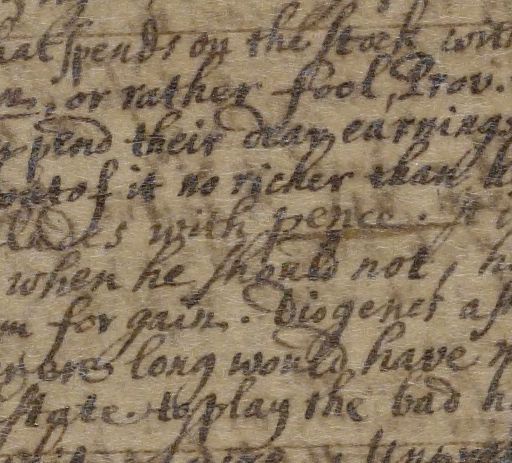 spends on the stock with
or rather fool, Prov.
spend their dear earnings
out of it no richer than
lades with pence. It
when he should not, h
for gain. Diogenes as
ere long would have
state. to play the bad h